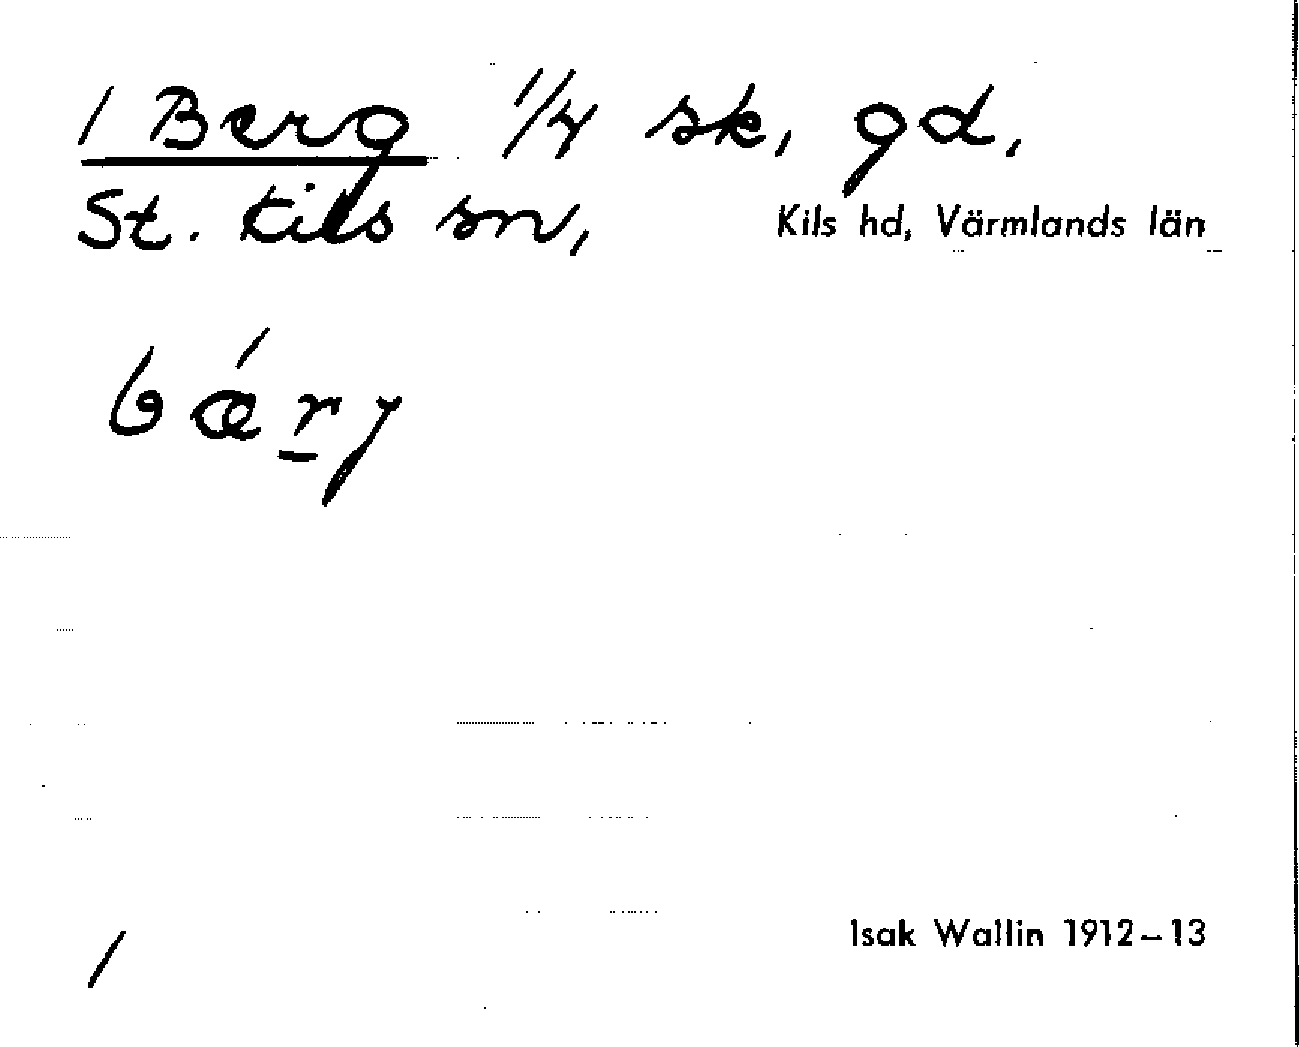 1 Berg 1/4 sk, gd,
St. Kils sn, Kils hd, Värmlands län
bǽr̲y
1
Isak Wallin 1912–13